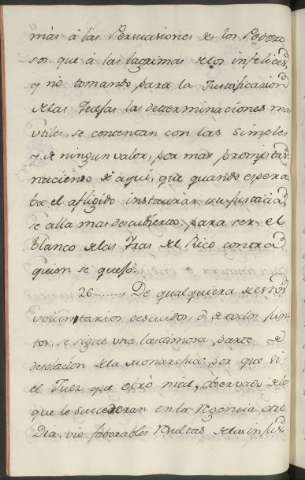 mas á las Persuasiones de los Podero
sos que á las lagrimas de los infelices,
y no tomando para la Justificacion
de las Quejas las determinaciones mas
utiles se contentan con las simples
y de ningun valor, por mas promptas
naciendo de aqui, que quando espera
ba el afligido instaurar su justicia
se alla mas descubierto, para ser el
blanco de las Iras del Rico contra
quien se quejó.
26 De qualquiera de estos
voluntarios descuidos, ó de todos jun
tos, se sigue una lastimosa parte de
desolacion de la Monarchia, por que si
el Juez que obró mal, observado de lo
que le sucederan en la Agencia, que
Dia, vio favorables Resultas de las